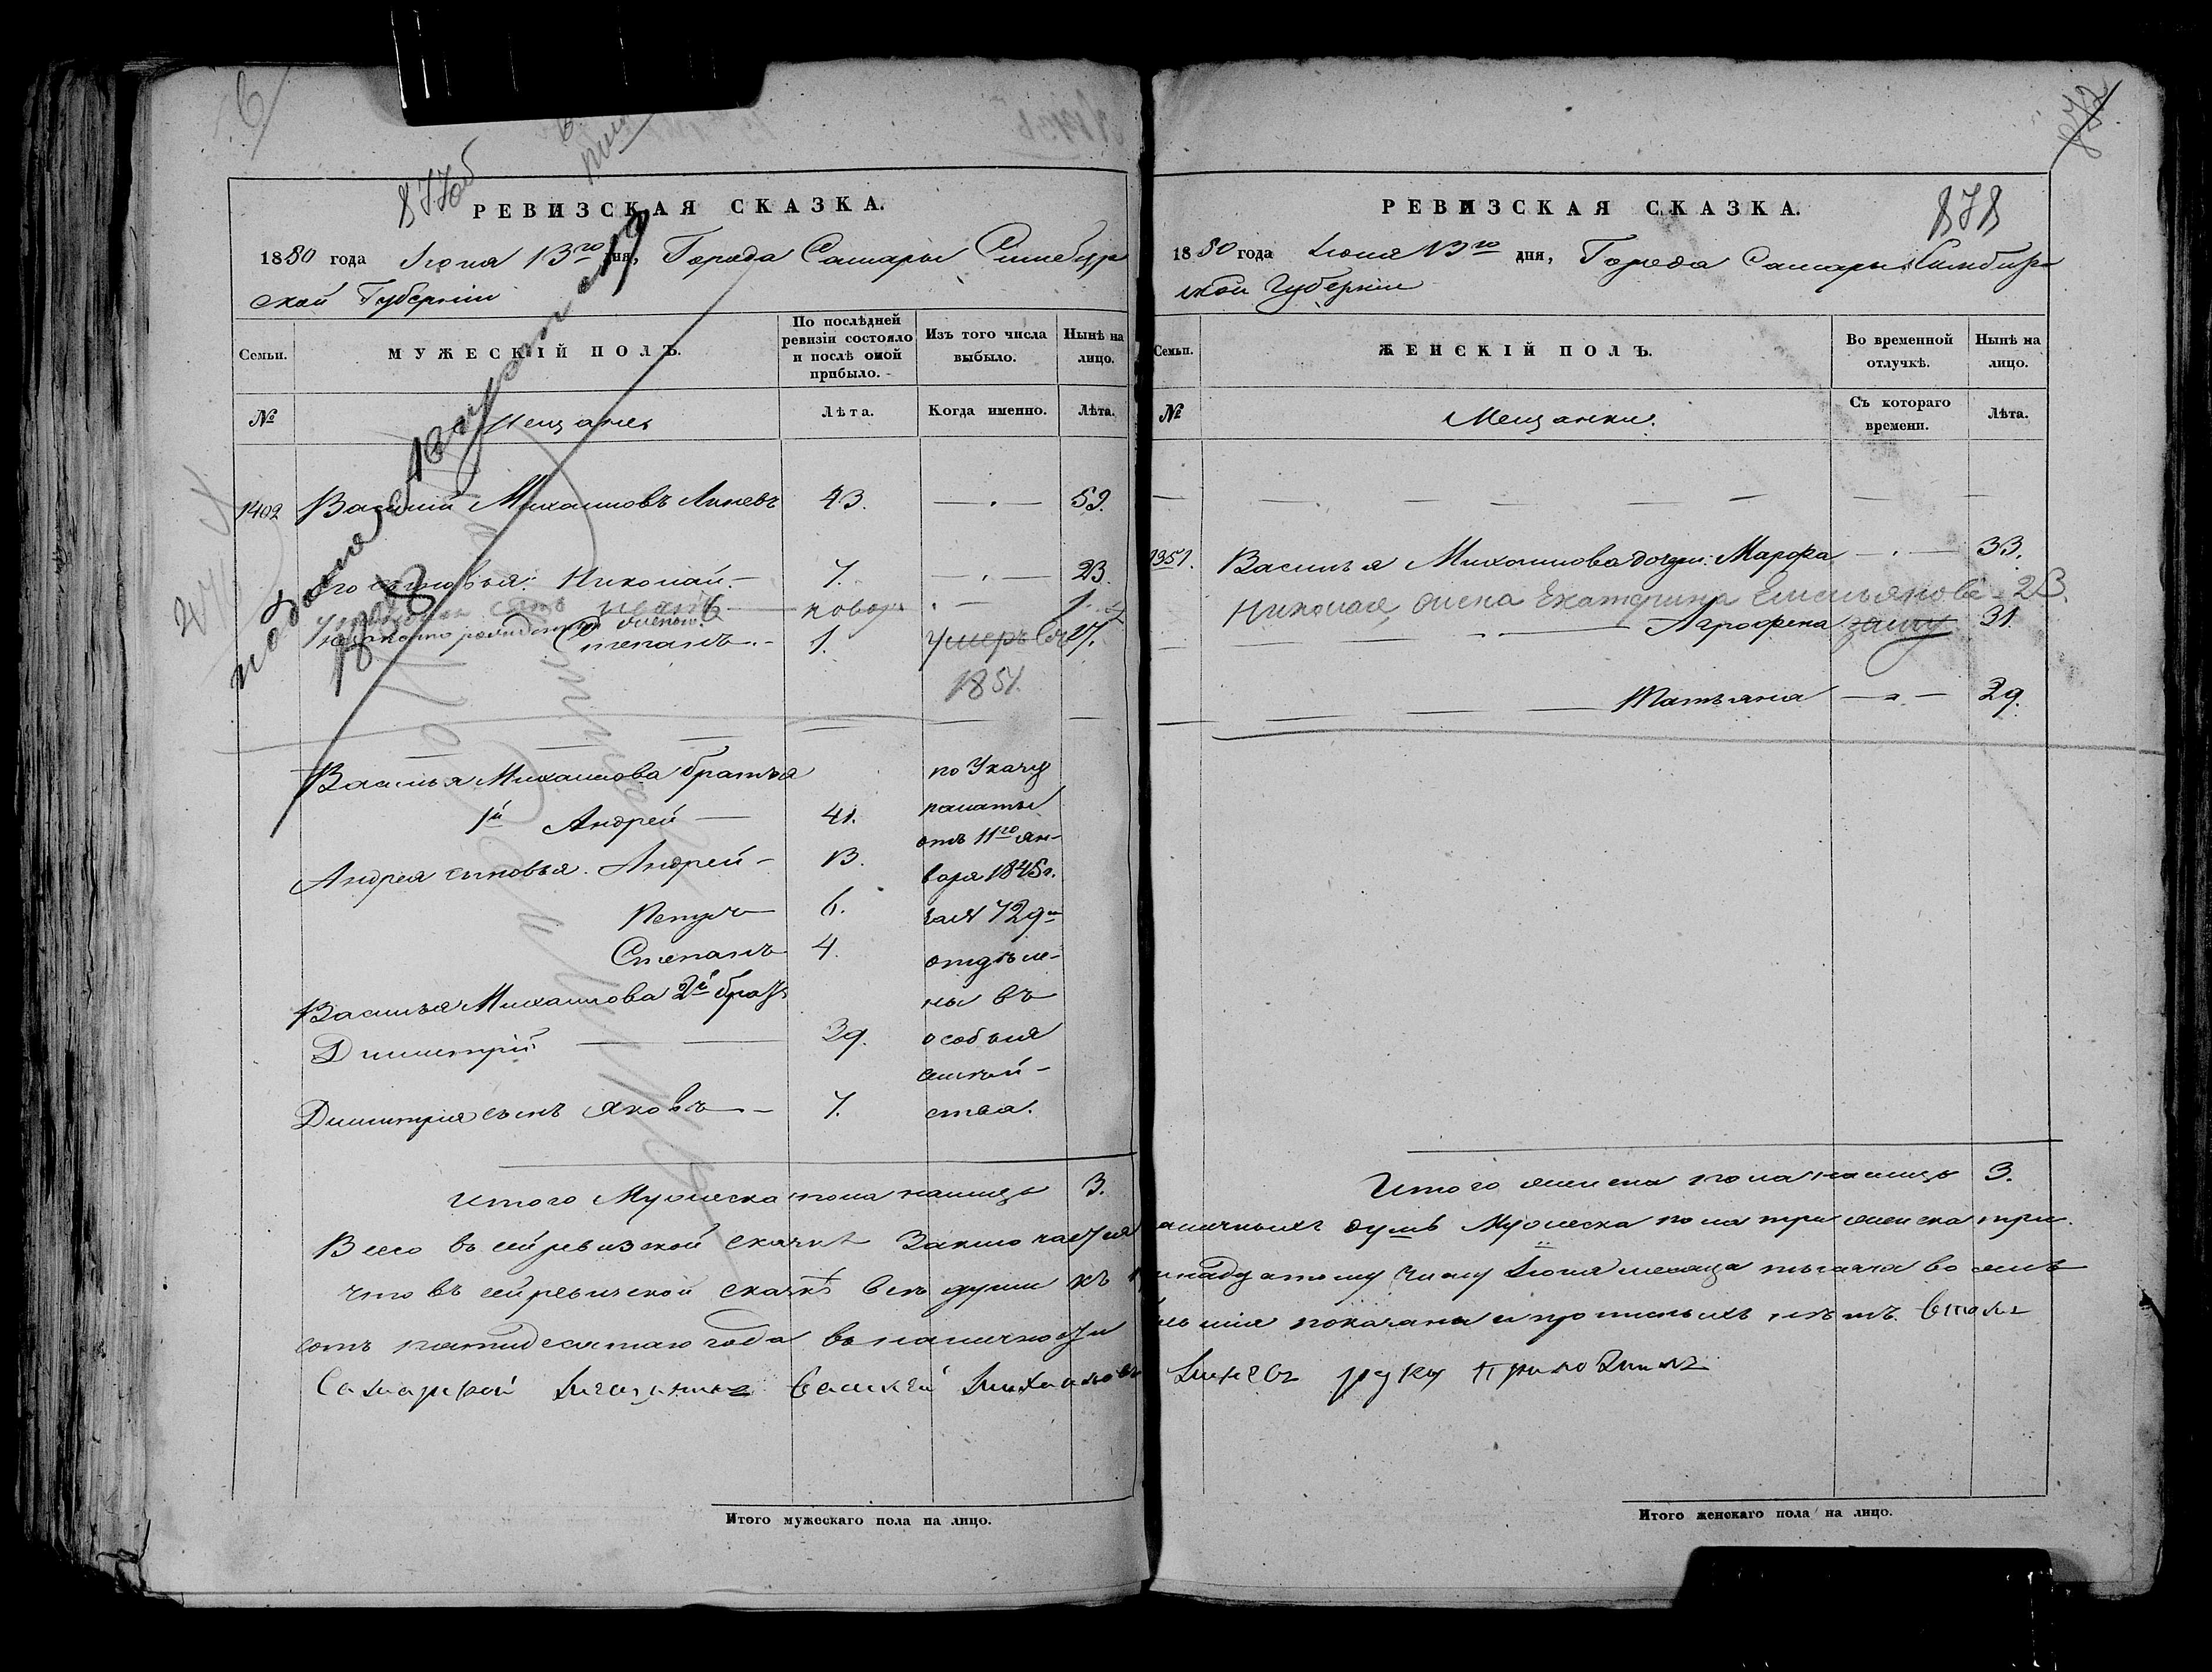 877об
РЕВИЗСКАЯ СКАЗКА.
1850 года Іюня 13го дня, Города Самары Симбирской Губерніи
Семьи.
МУЖЕСКІЙ ПОЛЪ.
По послѣдней ревизіи состояло и послѣ оной прибыло.
Изъ того числа выбыло.
Нынѣ на лицо.
№
Мещане
Лѣта.
Когда именно.
Лѣта.
1402 Василій Михайловъ Линевъ 43. 59.
Его сыновья: Николай 7. 23.
новор 1
Степанъ 1. Умеръ 17.
1851.
Василья Михайлова братья
1й Андрей 41.
Андрея сыновья. Андрей 13.
Петръ 6.
Степанъ 4.
Василья Михайлова 2й братъ
Димитрій 39.
Димитрія сынъ Яковъ 7.
по Указу
палаты
отъ 11го ян-
варя 1845г.
за № 729м
отдѣле-
ны въ
особыя
семей-
ства.
Итого Мужеска пола налицо 3.
878
РЕВИЗСКАЯ СКАЗКА.
1850 года Іюня 13го дня, Города Самары Симбирской Губерніи
Семьи.
ЖЕНСКІЙ ПОЛЪ.
Во временной отлучкѣ.
Нынѣ на лицо.
№
Мещанки.
Съ котораго времени.
Лѣта.
1351. Василья Михайлова дочери: Марфа 33.
Николая жена Екатерина Емельянова 23.
Агрофена заму 31.
Татьяна 29.
Итого женска пола налицо 3.
Всего въ сей ревизской сказкѣ Заключается наличныхъ душъ Мужеска пола три женска три.
что въ сей ревизской сказкѣ всѣ души къ тринадцатому числу Іюня месяца тысяча восемь
сотъ пятидесятаго года въ наличности бывшія показаны и прописныхъ нѣтъ. Въ томъ
Самарской мещанинъ Василей Михайловъ Линевъ руку приложилъ
Итого мужескаго пола на лицо.
Итого женскаго пола на лицо.